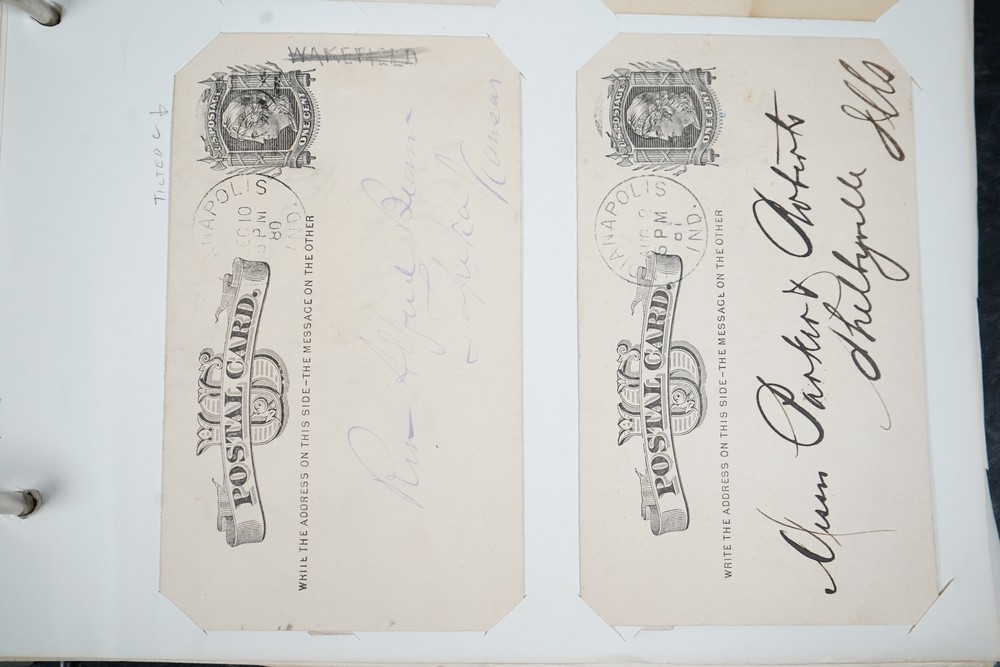 TILTED C
WAKEFIELD
U.S. POSTAGE
ONE CENT
NAPOLIS
EC 10
PM
80
IND.
US
POSTAL CARD.
WRITE THE ADDRESS ON THIS SIDE–THE MESSAGE ON THE OTHER
Rev Alfred
Topeka Kansas
U.S. POSTAGE
ONE CENT
ANAPOLIS
5 PM
81
IND.
US
POSTAL CARD.
WRITE THE ADDRESS ON THIS SIDE–THE MESSAGE ON THE OTHER
Messrs Parker & Roberts
Shelbyville Ills